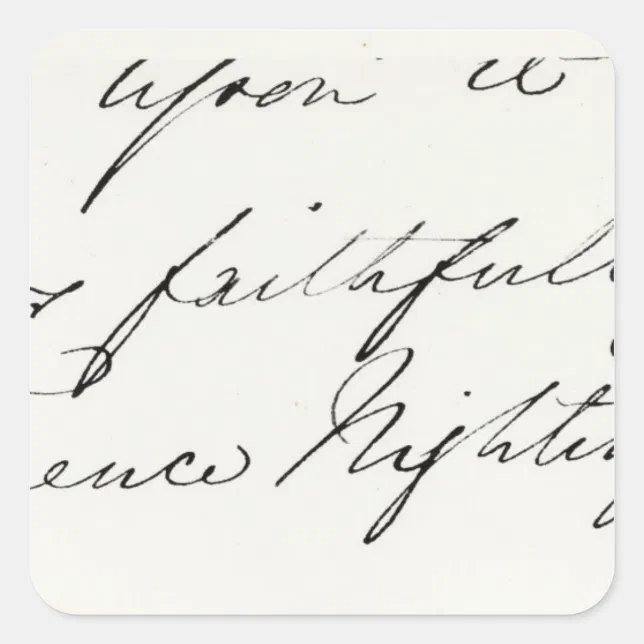 upon it
s faithfull
ence Nightin